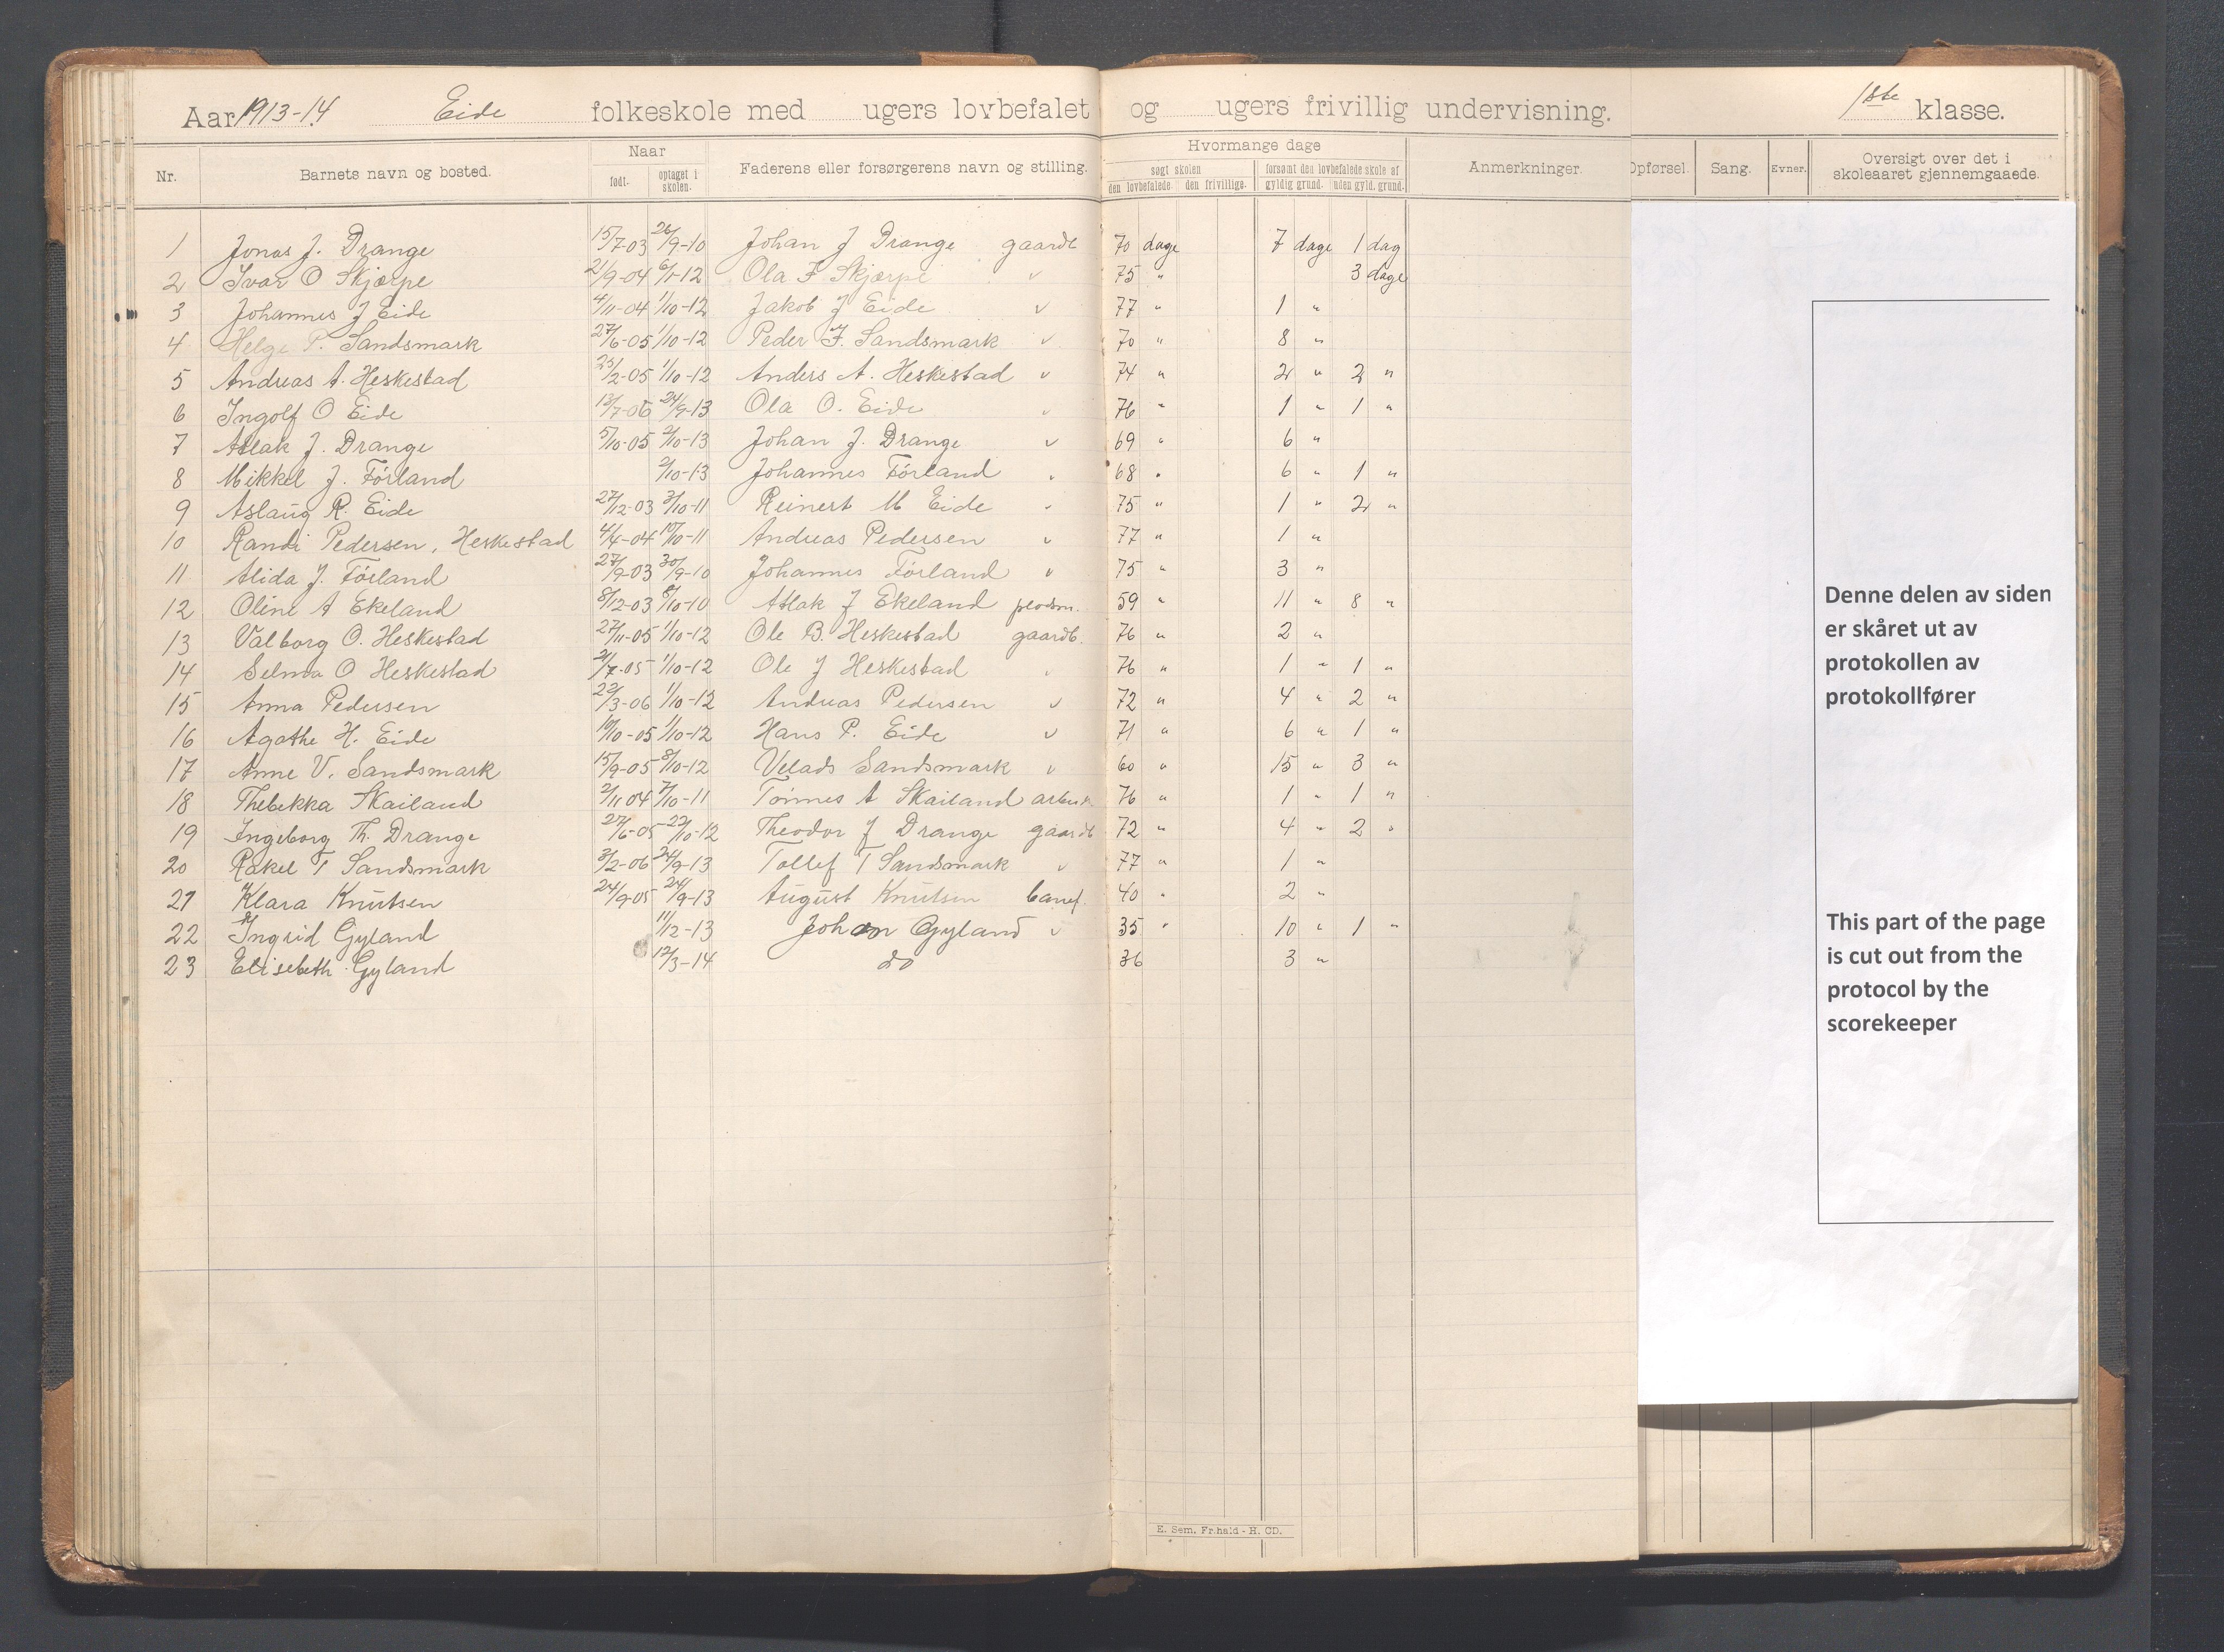 Aar 1913-14 Eide folkeskole med ugers lovbefalet og ugers frivillig undervisning. 1ste klasse.
Nr. Barnets navn og bosted. Naar født. optaget i skolen. Faderens eller forsørgerens navn og stilling. Hvormange dage søgt skolen den lovbefalede. den frivillige. forsømt den lovbefalede skole af gyldig grund. uden gyld. grund. Anmerkninger. Opførsel. Sang. Evner. Oversigt over det i skoleaaret gjennemgaaede.
1 Jonas J. Drange 15/7-03 26/9-10 Johan J Drange gaardb 70 dage 7 dage 1 dag
2 Ivar O Skjærpe 21/9-04 6/1-12 Ola F Skjærpe " 75 " 3 dage
3 Johannes J Eide 4/11-04 1/10-12 Jakob J Eide " 77 " 1 "
4 Helge P. Sandsmark 27/6-05 1/10-12 Peder F. Sandsmark " 70 " 8 "
5 Andreas A. Heskestad 25/2-05 1/10-12 Anders A. Heskestad " 74 " 2 " 2 "
6 Ingolf O Eide 13/7-06 24/9-13 Ola O. Eide " 76 " 1 " 1 "
7 Atlak J. Drange 5/10-05 2/10-13 Johan J. Drange " 69 " 6 "
8 Mikkel J. Förland 2/10-13 Johannes Förland " 68 " 6 " 1 "
9 Aslaug R. Eide 27/12-03 3/10-11 Reinert M Eide " 75 " 1 " 2 "
10 Randi Pedersen, Heskestad 4/4-04 10/10-11 Andreas Pedersen " 77 " 1 "
11 Alida J. Förland 27/9-03 30/9-10 Johannes Förland " 75 " 3 "
12 Oline A Ekeland 8/12-03 8/10-10 Atlak J Ekeland pladsm. 59 " 11 " 8 "
13 Valborg O. Heskestad 27/11-05 1/10-12 Ole B. Heskestad gaardb. 76 " 2 "
14 Selma O Heskestad 21/7-05 1/10-12 Ole J Heskestad " 76 " 1 " 1 "
15 Anna Pedersen 22/3-06 1/10-12 Andreas Pedersen " 72 " 4 " 2 "
16 Agathe H. Eide 10/10-05 1/10-12 Hans P. Eide " 71 " 6 " 1 "
17 Anne V. Sandsmark 15/9-05 8/10-12 Velads Sandsmark " 60 " 15 " 3 "
18 Thebekka Skailand 2/11 04 7/10-11 Tönnes A Skailand 76 " 1 " 1 "
19 Ingeborg Th. Drange 27/6-05 22/10-12 Theodor J Drange gaardb 72 " 4 " 2 "
20 Rakel T Sandsmark 3/2-06 24/9-13 Tollef T Sandsmark " 77 " 1 "
21 Klara Knutsen 24/9-05 24/9-13 August Knutsen banef. 40 " 2 "
22 Ingrid Gyland 11/12-13 Johan Gyland " 35 " 10 " 1 "
23 Elisebeth Gyland 12/3-14 do 36 3 "
Denne delen av siden
er skåret ut av
protokollen av
protokollfører
This part of the page
is cut out from the
protocol by the
scorekeeper
E. Sem. Fr.hald - H. CD.